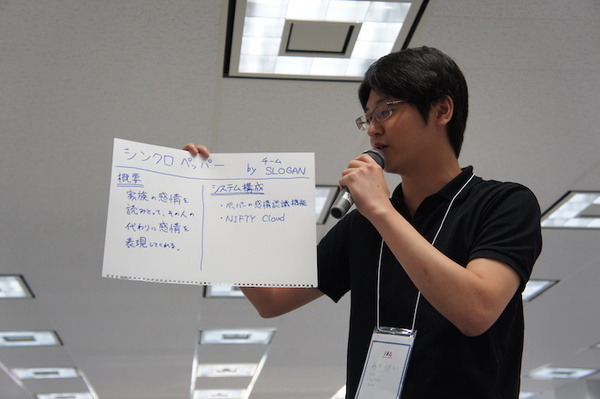 シンクロ ペッパー
by チーム SLOGAN
概要
家族の感情を
読みとって、その人の
代わりに感情を
表現してくれる。
システム構成
・ペッパーの感情認識機能
・NIFTY Cloud